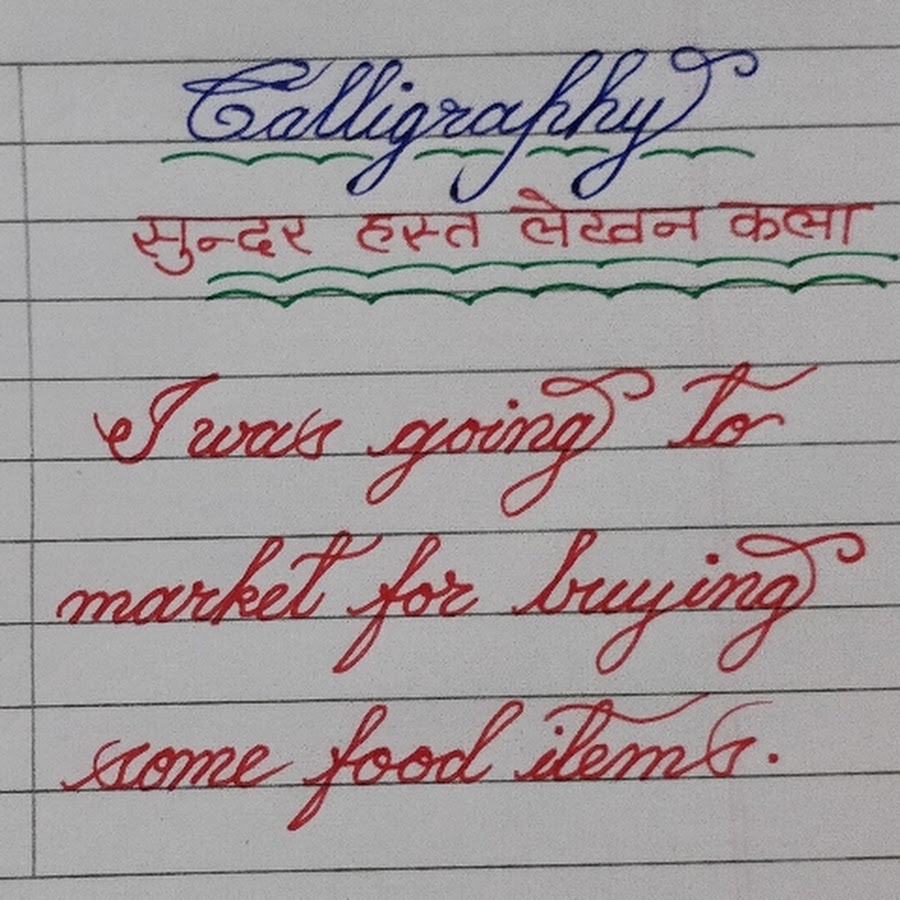 Calligraphy
सुन्दर हस्त लेखन कला
I was going to
market for buying
some food items.